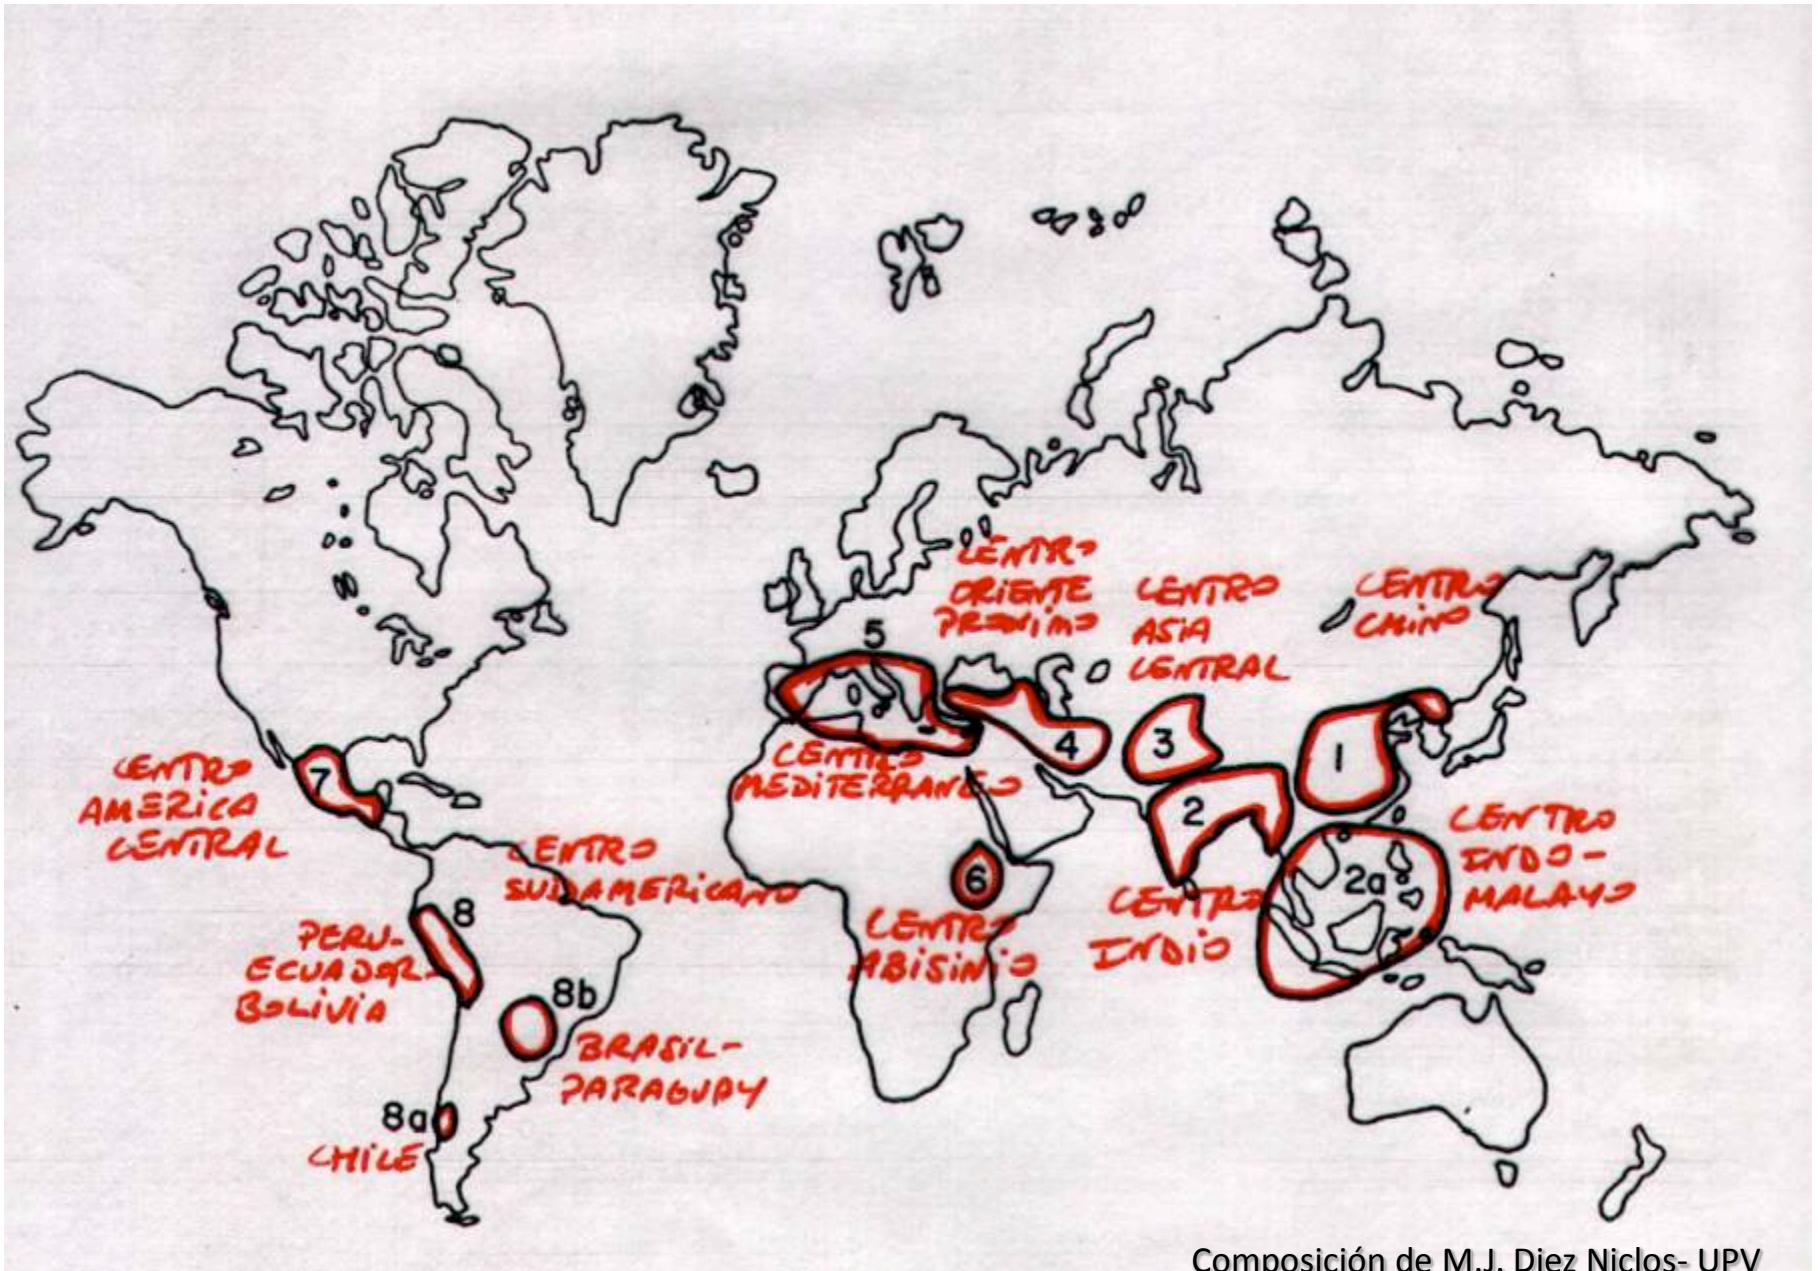 CENTRO
ORIENTE
PROXIMO
CENTRO
ASIA
CENTRAL
CENTRO
CHINO
5
4
3
1
2
CENTRO
MEDITERRANEO
7
CENTRO
AMERICA
CENTRAL
CENTRO
SUDAMERICANO
6
CENTRO
ABISINIO
CENTRO
INDIO
2a
CENTRO
INDO-
MALAYO
8
PERU-
ECUADOR-
BOLIVIA
8b
BRASIL-
PARAGUAY
8a
CHILE
Composición de M.J. Diez Niclos- UPV